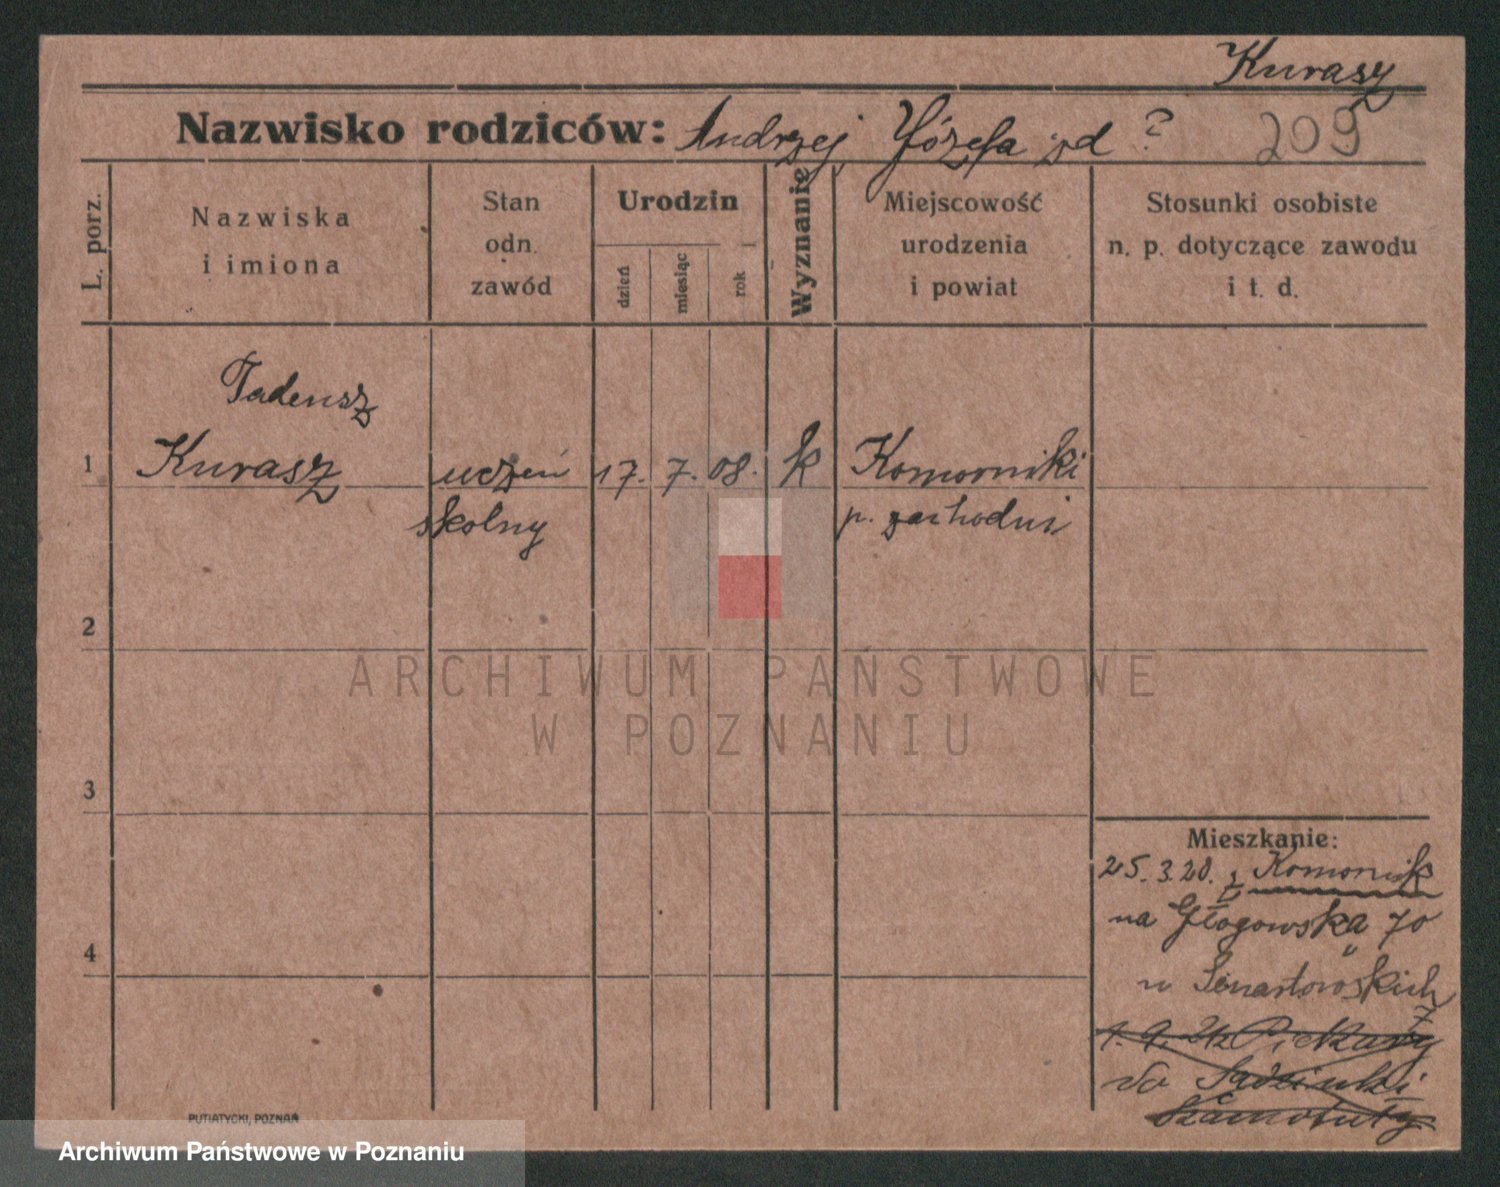 Kurasz
Nazwisko rodziców: Andrzej, Józefa zd ?
209
L. porz.
Nazwiska
i imiona
Stan
odn.
zawód
Urodzin
dzień
miesiąc
rok
Wyznanie
Miejscowość
urodzenia
i powiat
Stosunki osobiste
n. p. dotyczące zawodu
i t. d.
Tadeusz
1 Kurasz uczeń 17. 7. 08. k Komorniki
skolny p. zachodni
2
3
4
ARCHIWUM PAŃSTWOWE
W POZNANIU
Mieszkanie:
25.3.20. z Komornik
na Głogowska 70
u
1. 9. 22 Piekary 7
do
Szamotuły
PUTIATYCKI, POZNAŃ
Archiwum Państwowe w Poznaniu